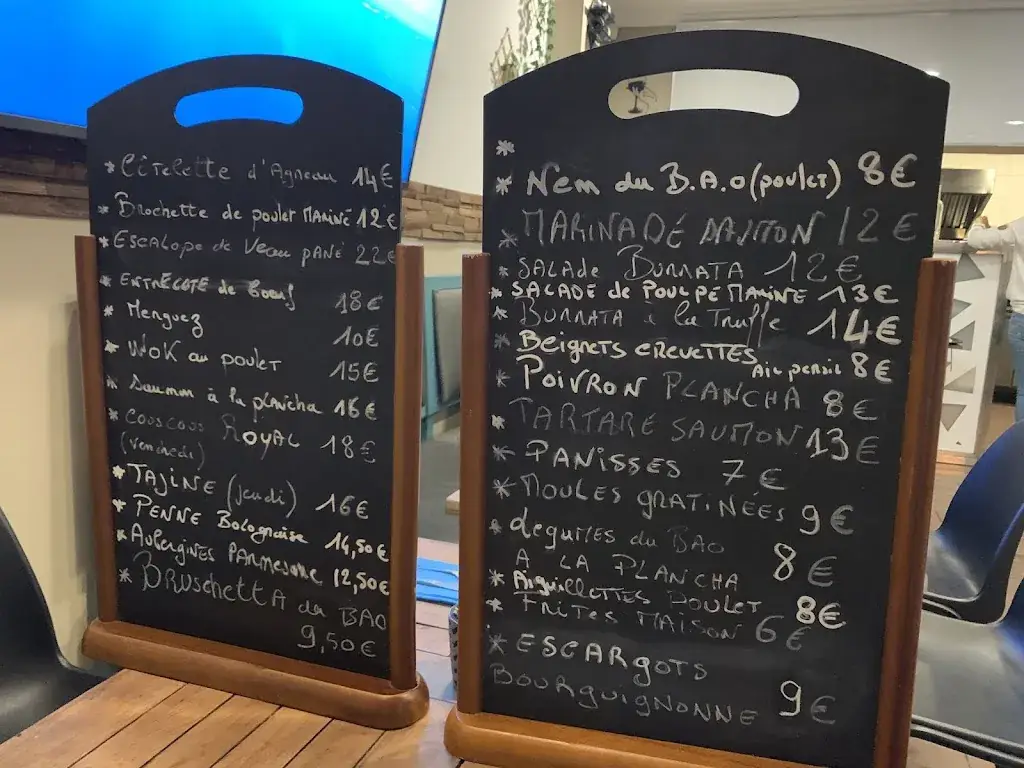 * Côtelette d'Agneau 14€
* Brochette de poulet MARiNÉ 12€
* ESCAlope de Veau pANÉ 22€
* ENTRECOTE de boeuf 18€
* Merguez 10€
* WoK au poulet 15€
* Saumon à la plancha 16€
* COUSCOUS ROYAL 18€
(vendredi)
* TAJINE (jeudi) 16€
* PENNE Bolognaise 14,50€
* AUbergiNES PARMESANE 12,50€
* BRUSchettA du BAO
9,50€
*
* Nem du B.A.o (poulet) 8€
* MARINADE SAUMON 12€
* SALAde BURRATA 12€
* SALADE de POULPE MARINÉ 13€
* BURRATA à la Truffe 14€
* Beignets CREVETTES Ail persil 8€
* POIVRON PLANCHA 8€
* TARTARE SAUMON 13€
* PANISSES 7€
* MOULES GRATINÉES 9€
* légumes du BAO
A LA PLANCHA 8€
* AiguillETTES POULET 8€
* FRITES MAISON 6€
* ESCARGOTS
BOURGUIGNONNE 9€